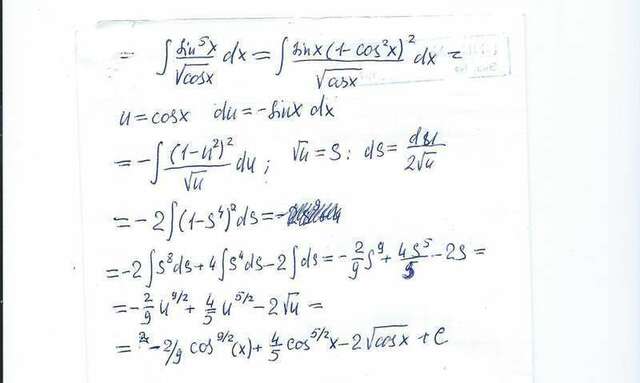 = ∫ sin⁵x/√cosx dx = ∫ sinx(1-cos²x)²/√cosx dx =
u = cosx du = -sinx dx
= -∫ (1-u²)²/√u du; √u = s: ds = du/2√u
= -2∫(1-s⁴)²ds = -
= -2∫s⁸ds + 4∫s⁴ds - 2∫ds = -2/9 s⁹ + 4s⁵/5 - 2s =
= -2/9 u^9/2 + 4/5 u^5/2 - 2√u =
= -2/9 cos^9/2(x) + 4/5 cos^5/2 x - 2√cosx + C